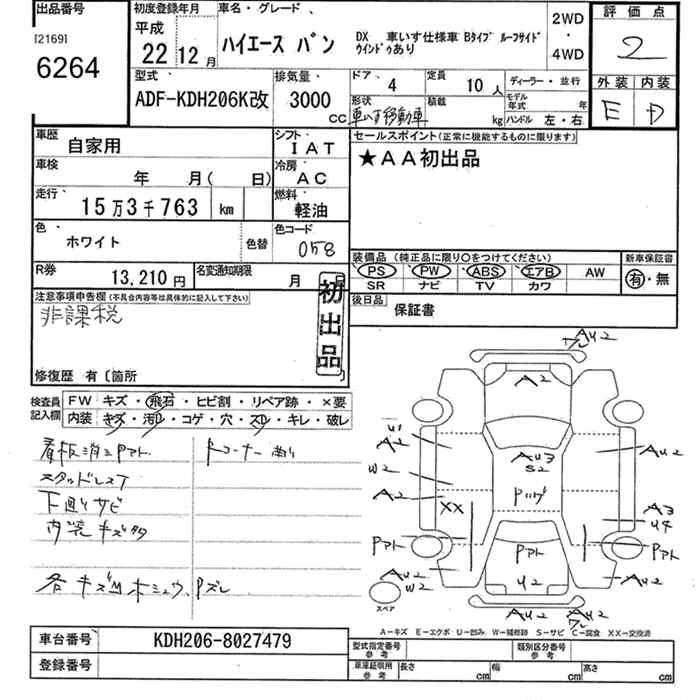 出品番号
[2169]
6264
初度登録年月
平成
22年12月
車名・グレード
ハイエース バン
DX 車いす仕様車 Bタイプ ルーフサイドウインドゥあり
2WD
・
4WD
評価点
2
外装 内装
E D
型式
ADF-KDH206K改
排気量
3000
CC
ドア 4
定員 10人
ディーラー・並行
形状
車いす移動車
積載
kg
モデル年式 年
ハンドル 左・右
車歴
自家用
シフト
IAT
車検
年 月( 日)
冷房
AC
走行
15万3千763 km
燃料
軽油
セールスポイント(正常に機能するものに限ります)
★AA初出品
色
ホワイト
色替
色コード
058
R券
13,210円
名変通知期限
月 日
装備品 (純正品に限り○をつけてください)
PS PW ABS エアB AW
SR ナビ TV カワ
新車保証書
有・無
後日品
保証書
注意事項申告欄(不具合内容等は具体的に記入して下さい)
非課税
初出品
修復歴 有〔箇所
検査員記入欄
FW キズ・飛石・ヒビ割・リペア跡・×要
内装 キズ・汚レ・コゲ・穴・スレ・キレ・破レ
看板消シPアト
スタッドレスT
下廻りサビ
内装キズ多
AU2
A2
U1
A2
W2
A2
AU3
S2
AU2
XX
A3
U4
Pアト
Pアト
Pアト
AU2
W2
U2
AU2
AU2
スペア
A-キズ E-エクボ U-凹み W-補修跡 S-サビ C-腐食 XX-交換済
車台番号
KDH206-8027479
登録番号
型式指定番号
参考
類別区分番号
参考
車庫証明用
参考
長さ cm
幅 cm
高さ cm